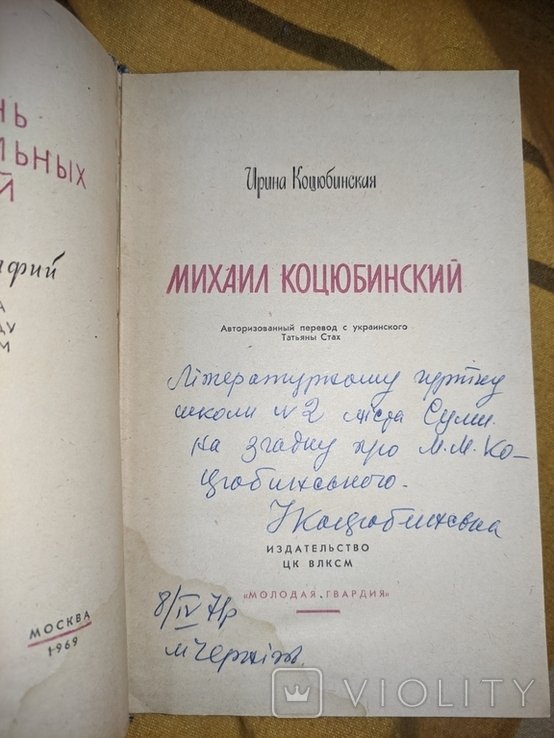 НЬ
ЛЬНЫХ
Й
АФИЙ
А
ДУ
М
МОСКВА
1969
Ирина Коцюбинская
МИХАИЛ КОЦЮБИНСКИЙ
Авторизованный перевод с украинского
Татьяны Стах
Літературному гуртку
школи №2 міста Суми.
На згадку про М.М. Ко-
цюбинського.
І Коцюбинська
ИЗДАТЕЛЬСТВО
ЦК ВЛКСМ
«МОЛОДАЯ ГВАРДИЯ»
8/IV 71р
м Чернігів.
VIOLITY